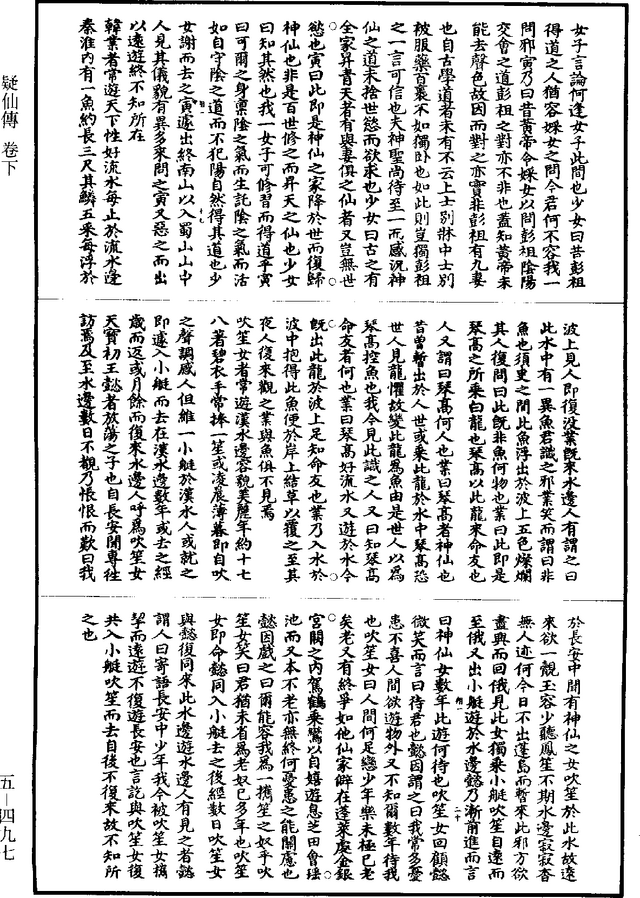 疑仙傳 卷下
女子言論何逢女子此問也少女曰昔彭祖
得道之人猶容婇女之問今君何不容我一
問邪寅乃曰昔黃帝令婇女以問彭祖陰陽
交會之道彭祖之對亦不非也蓋知黃帝未
能去聲色故因而對之亦實非彭祖有九妻
也自古學道者未有不云上士別牀中士別
被服藥百裹不如獨卧也如此則豈獨彭祖
之一言可信也夫神聖尚待至一而感況神
仙之道未捨世慾而欲求也少女曰古之有
全家昇書天者有與妻俱之仙者又豈無世
慾也寅曰此即是神仙之家降於世而復歸
神仙也非是百世修之而昇天之仙也少女
曰知其然也我一女子可修習而得道乎寅
曰可爾之身稟陰之氣而生託陰之氣而活
如自守陰之道而不犯陽自然得其道也少
女謝而去之寅遽出終南山以入蜀山山中
人見其儀貌有異多來問之寅又惡之而出
以遠遊終不知所在
韓業者常遊天下性好流水每止於流水邊
秦淮內有一魚約長三尺其鱗五采每浮於
波上見人即復没業旣來水邊人有謂之曰
此水中有一異魚君識之邪業笑而謂曰非
魚也須臾之間此魚浮出於波上五色燦爛
其人復問曰此旣非魚何物也業曰此即是
琴高之所乘白龍也琴高以此龍來命友也
人又謂曰琴高何人也業曰琴高者神仙也
昔曾暫出於人世或乘此龍於水中琴高恐
世人見龍懼故變此龍爲魚由是世人以爲
琴高控魚也我今見此識之人又曰知琴高
命友者何也業曰琴高好流水又遊於水今
旣出此龍於波上足知命友也業乃入水於
波中抱得此魚便於岸上結草以覆之至其
夜人復來觀之業與魚俱不見焉
吹笙女者常遊漢水邊容貌美麗年約十七
八著碧衣手常捧一笙或凌晨薄暮即自吹
之聲調感人但維一小艇於漢水人或就之
即遽入小艇而去在漢水邊數年或去之經
歲而返或月餘而復來水邊人呼爲吹笙女
天寶初王懿者放蕩之子也自長安聞專往
訪焉及至水邊數日不覩乃悵恨而歎曰我
於長安中聞有神仙之女吹笙於此水故遠
來欲一覩玉容少聽鳳笙不期水邊寂寂杳
無人迹何今日不出蓬島而暫來此邪方欲
盡興而回俄見此女獨乘小艇吹笙自遠而
至俄又出小艇遊於水邊懿乃漸前進而言
曰神仙女數年此遊何待也吹笙女回顧懿
微笑而言曰待君也懿因謂之曰我常多憂
患不喜人間欲遊物外又不知爾數年待我
也吹笙女曰人間何足戀少年樂未極已老
矣老又有終爭如他仙家僻在蓬萊處金銀
宮闕之內駕鶴乘鸞以自嬉遊息芝田會瑶
池而又本不老亦無終何憂患之能關慮也
懿因戲之曰爾能容我爲一攜笙之奴乎吹
笙女笑曰君猶未省爲老奴已多年也吹笙
女即命懿同入小艇去之後經數日吹笙女
與懿復同來此水邊遊水邊人有見之者懿
謂人曰寄語長安中少年我今被吹笙女擕
挈而遠遊不復遊長安也言訖與吹笙女復
共入小艇吹笙而去自後不復來故不知所
之也
五—四九七